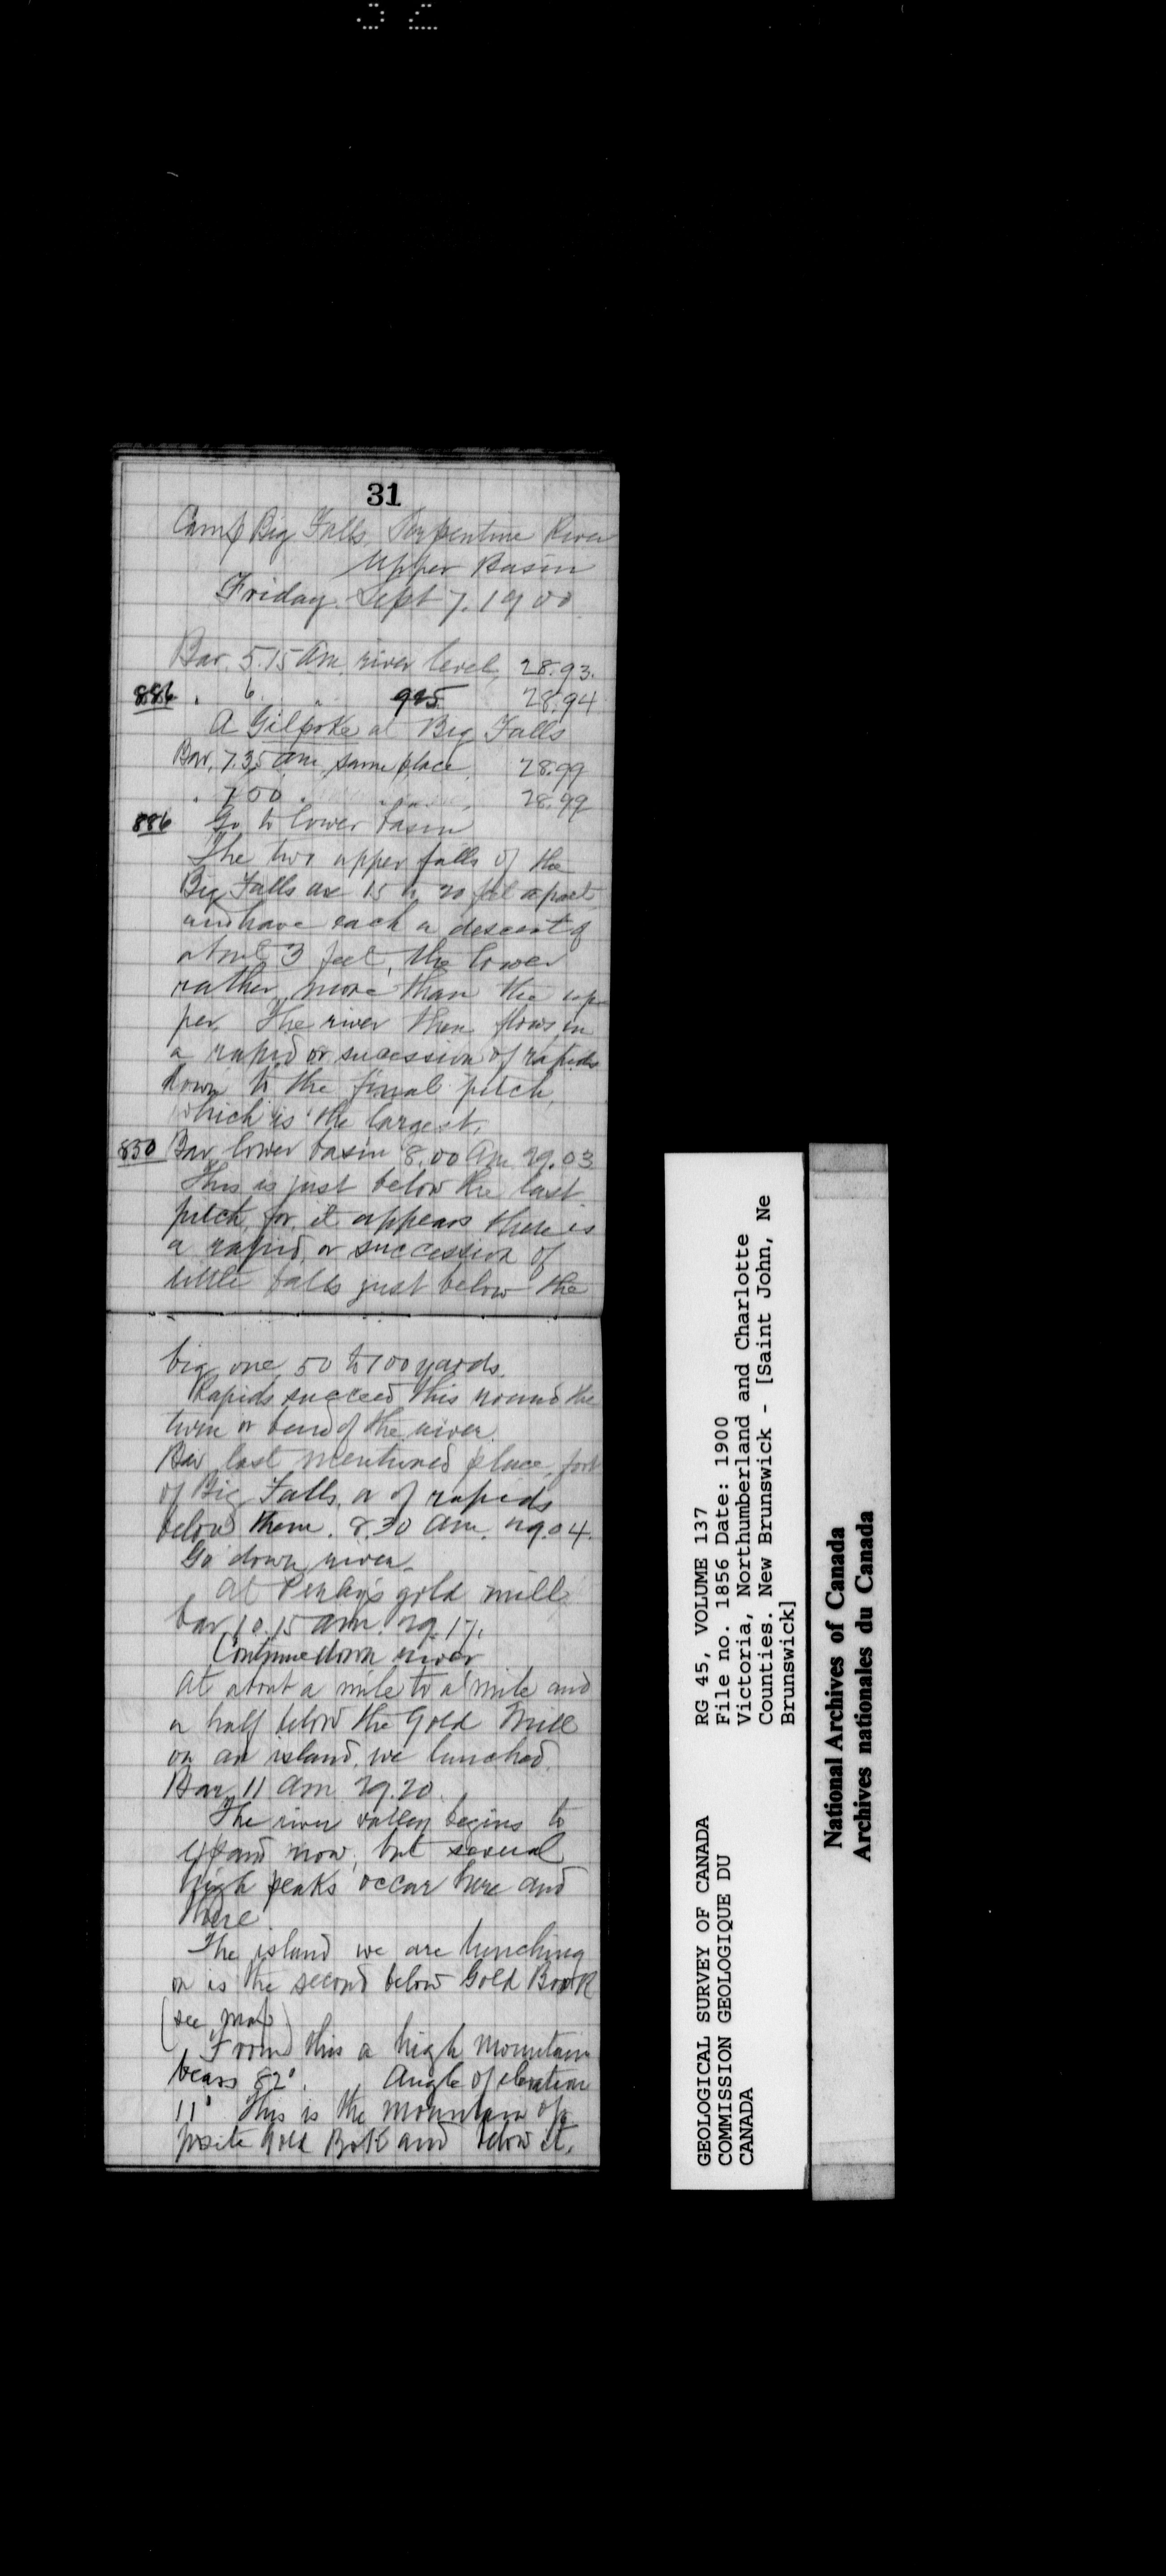 31
Camp Big Falls, Serpentine River
Upper Basin
Friday Sept 7. 1900
Bar. 5.15 am river level, 28.93.
886 . 6. " 925 28.94
A Gilpoke at Big Falls
Bar. 7.35 am same place 28.99
. 7.50 . 28.99
886 Go to lower basin
The two upper falls of the
Big Falls are 15 to 20 feet apart
and have each a descent of
about 3 feet, the lower
rather more than the up
per. The river then flows in
a rapid or sucession of rapids
down to the final pitch,
which is the largest.
850 Bar lower basin 8.00 am 29.03
This is just below the last
pitch, for it appears there is
a rapid or succession of
little falls just below the
big one 50 to 100 yards.
Rapids succeed this round the
turn or bend of the river.
Bar last mentioned place, foot
of Big Falls, or of rapids
below them. 8.30 am. 29.04.
Go down river.
At gold mill
bar. 10.15 am. 29.17.
Continue down river
At about a mile to a mile and
a half below the Gold Mill
on an island, we lunched.
Bar 11 am 29.20.
The river valley begins to
expand now, but several
high peaks occur here and
there.
The island we are lunching
on is the second below Gold Brook
(see map)
From this a high mountain
bears 82°. Angle of elevation
11° This is the mountain op
posite Gold Brook and below it.
RG 45, VOLUME 137
File no. 1856 Date: 1900
Victoria, Northumberland and Charlotte
Counties. New Brunswick - [Saint John, Ne
Brunswick]
GEOLOGICAL SURVEY OF CANADA
COMMISSION GEOLOGIQUE DU
CANADA
National Archives of Canada
Archives nationales du Canada